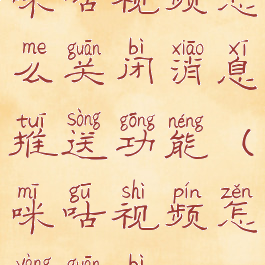 咪咕视频怎
me guān bì xiāo xí
么关闭消息
tuī sòng gōng néng
推送功能（
mī gū shì pín zěn
咪咕视频怎
yàng guān bì